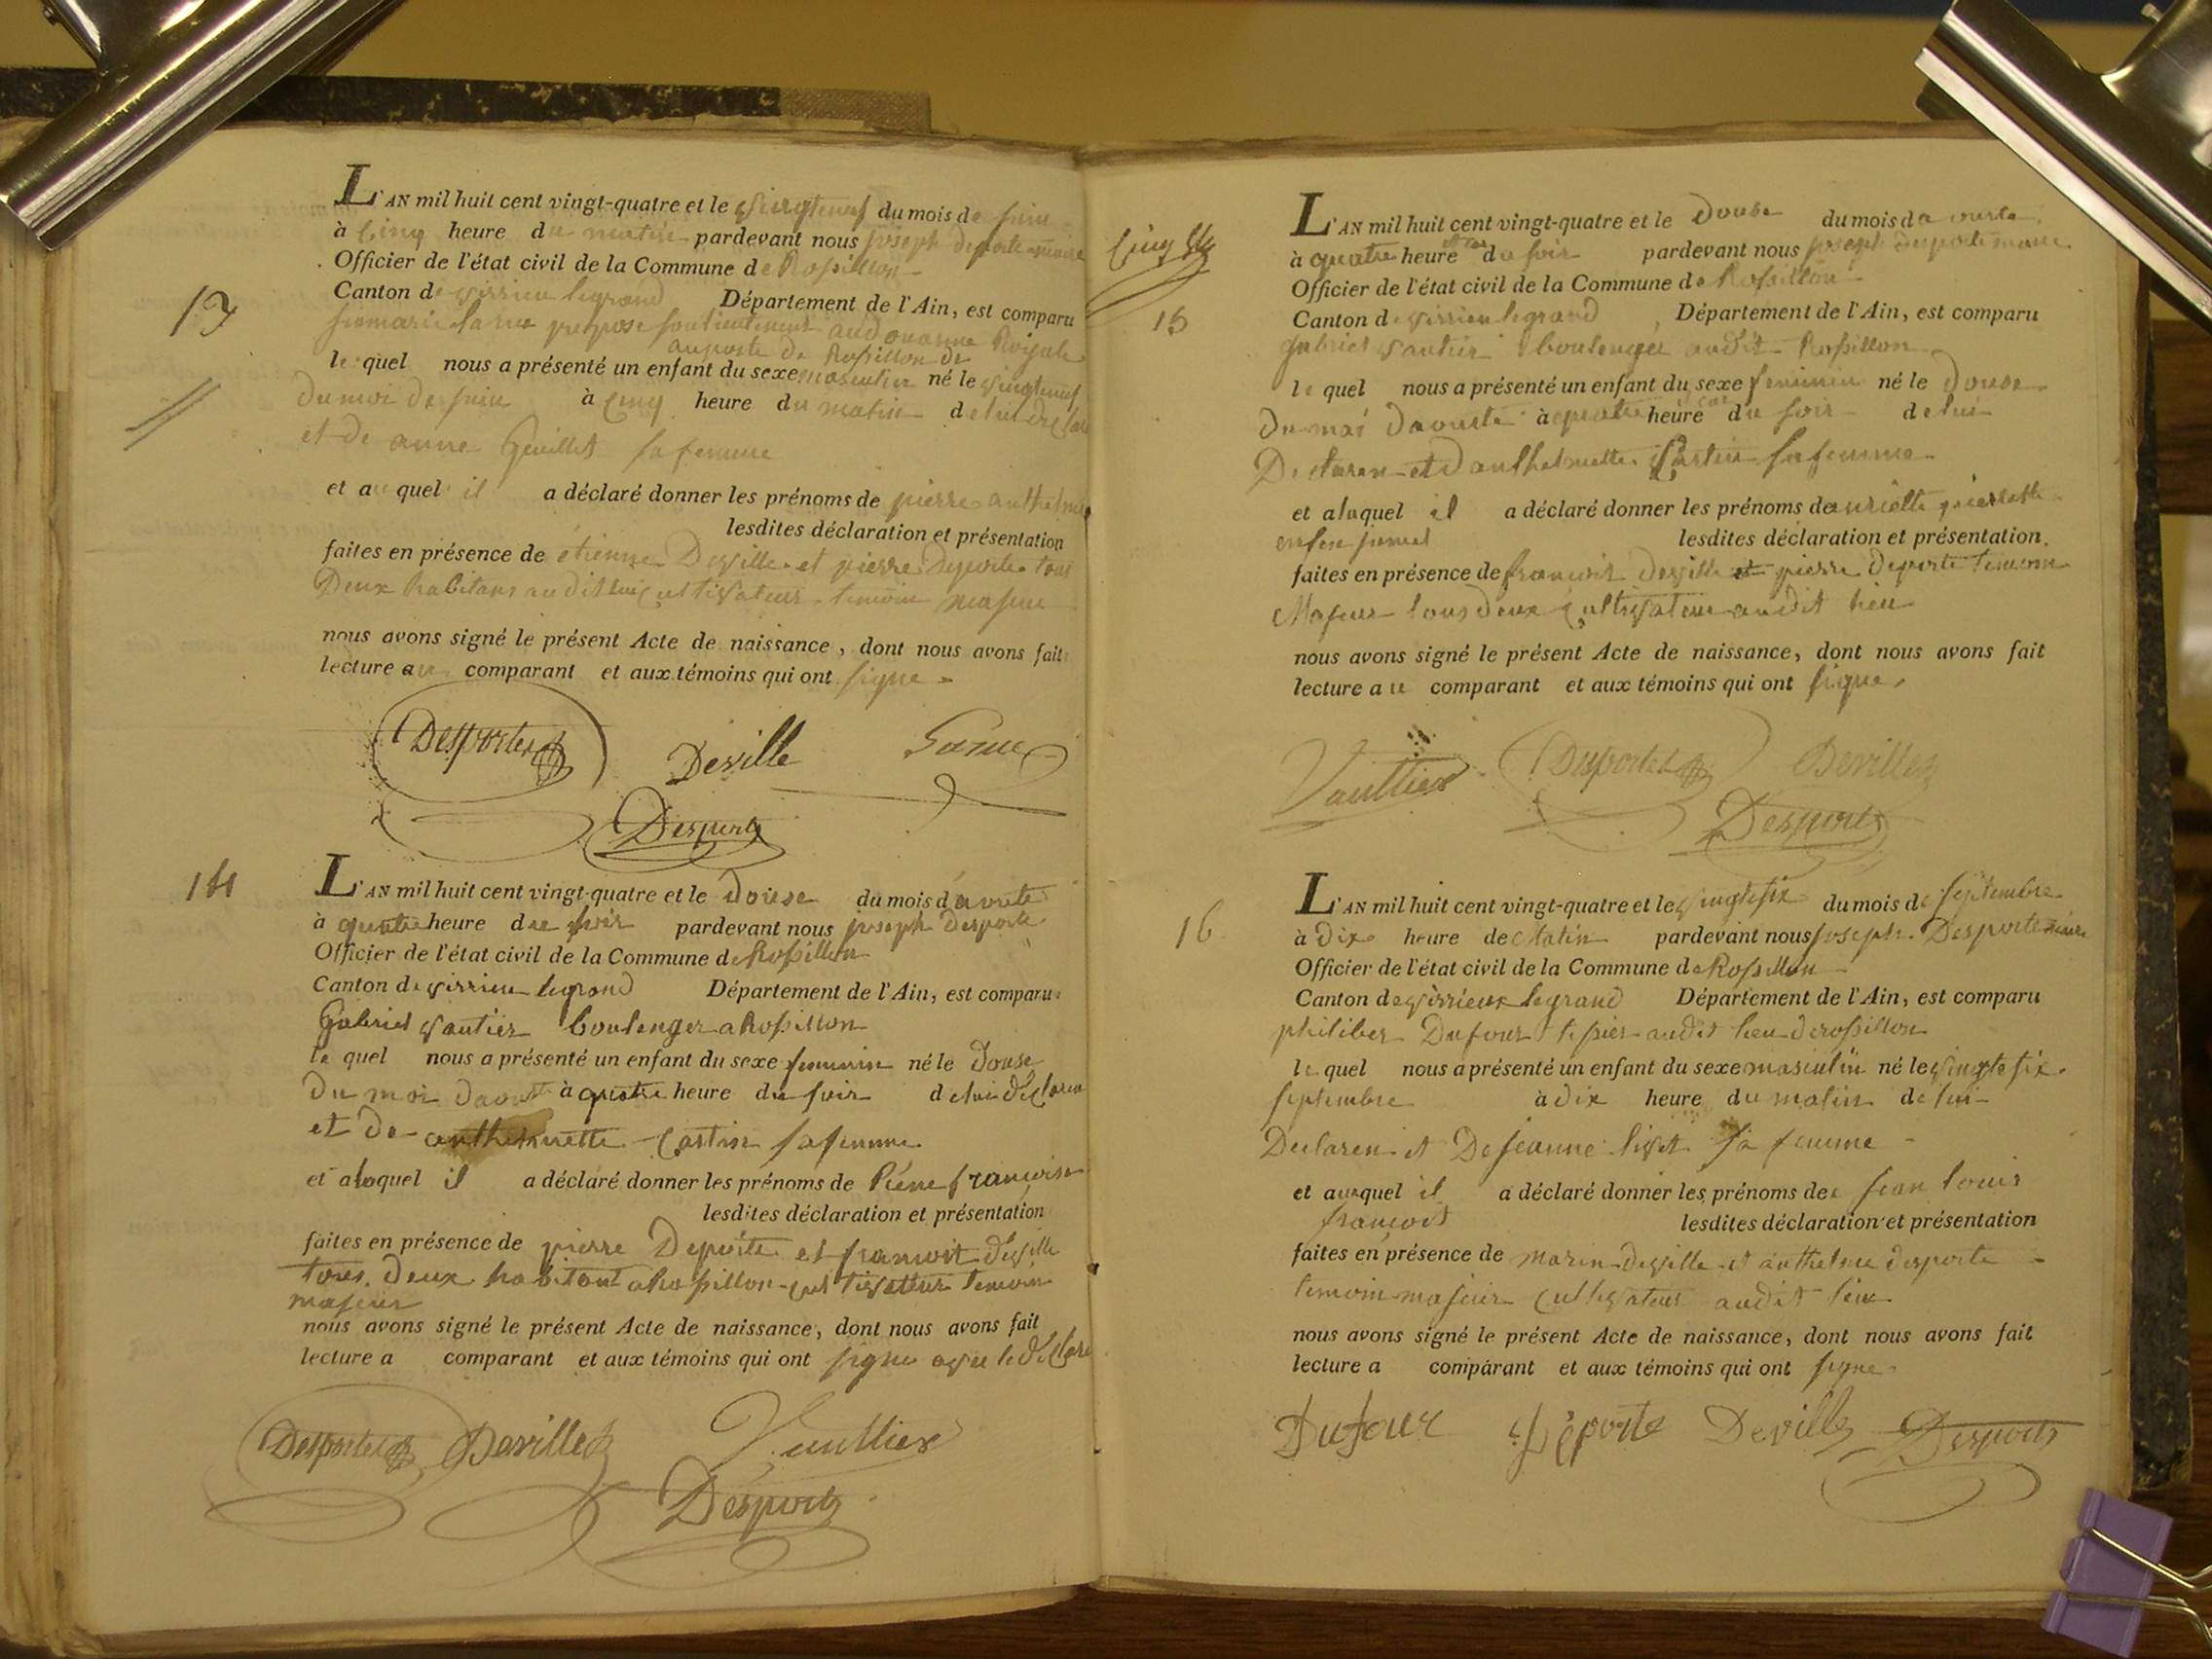 L'AN mil huit cent vingt-quatre et le vingtneuf du mois de juin
à Cinq heure du matin pardevant nous joseph deporte maire
Officier de l'état civil de la Commune de Rossillon
13
Canton de virrieu legrand Département de l'Ain, est comparu
larue prepose audouanne Royale
auposte de Rossillon de
le quel nous a présenté un enfant du sexe masculin né le vingtneuf
du moi de juin à Cinq heure du matin de lui declare
et de anne Guillet sa femme
et au quel il a déclaré donner les prénoms de pierre anthelme
lesdites déclaration et présentation
faites en présence de étienne Deville et pierre Deporte tous
Deux habitans audit lieu cultivateur temoin majeur
nous avons signé le présent Acte de naissance, dont nous avons fait
lecture au comparant et aux témoins qui ont signe
Desportes Deville Larue
Desportes
14
L'AN mil huit cent vingt-quatre et le Douse du mois d'aoute
à quatre heure du soir pardevant nous joseph Desporte
Officier de l'état civil de la Commune de Rossillon
Canton de virrieu legrand Département de l'Ain, est comparu
Gabriel vautier boulenger a Rossillon
le quel nous a présenté un enfant du sexe feminin né le Douse
Du moi daout à quatre heure du soir de lui déclaren
et de anthelmette Castin safemme
et alaquel il a déclaré donner les prénoms de francoise
lesdites déclaration et présentation
faites en présence de pierre Deporte et francoit deville
tous deux habitant a Rossillon cultivateur temoin
majeur
nous avons signé le présent Acte de naissance, dont nous avons fait
lecture a comparant et aux témoins qui ont signe avec le declare
Desportes Deville Vaultier
Desportes
15
L'AN mil huit cent vingt-quatre et le Douse du mois daouste
à quatre heure du soir pardevant nous joseph desporte maire
Officier de l'état civil de la Commune de Rossillon
Canton de virrieu legrand Département de l'Ain, est comparu
gabriel vautier boulenger audit Rossillon
le quel nous a présenté un enfant du sexe feminin né le Douse
Du moi Daouste à quatre heure du soir de lui
Declaren et d anthelmette Castin safemme
et alaquel il a déclaré donner les prénoms de
enfen jumel lesdites déclaration et présentation
faites en présence de francoit deville et pierre Deporte temoin
Majeur tous deux cultivateur audit lieu
nous avons signé le présent Acte de naissance, dont nous avons fait
lecture au comparant et aux témoins qui ont signe
Vaultier Desportes Deville
Desportes
16
L'AN mil huit cent vingt-quatre et le vingtesix du mois de septembre
à Dix heure de Matin pardevant nous joseph Desporte maire
Officier de l'état civil de la Commune de Rossillon
Canton de virrieux legrand Département de l'Ain, est comparu
philiber Dufour audit lieu derossillon
le quel nous a présenté un enfant du sexe masculin né le vingtesix
septembre à dix heure du matin de lui
Declaren et De jeanne livet sa femme
et auquel il a déclaré donner les prénoms de jean louis
francois lesdites déclaration et présentation
faites en présence de marin deville et anthelme desporte
temoin majeur cultivateur audit lieu
nous avons signé le présent Acte de naissance, dont nous avons fait
lecture a comparant et aux témoins qui ont signe
Dufour Déporte Deville Desportes